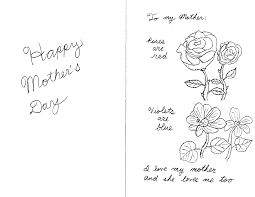 Happy
Mother's
Day
To my Mother:
Roses
are
red
Violets
are
blue
I love my mother
and she loves me too